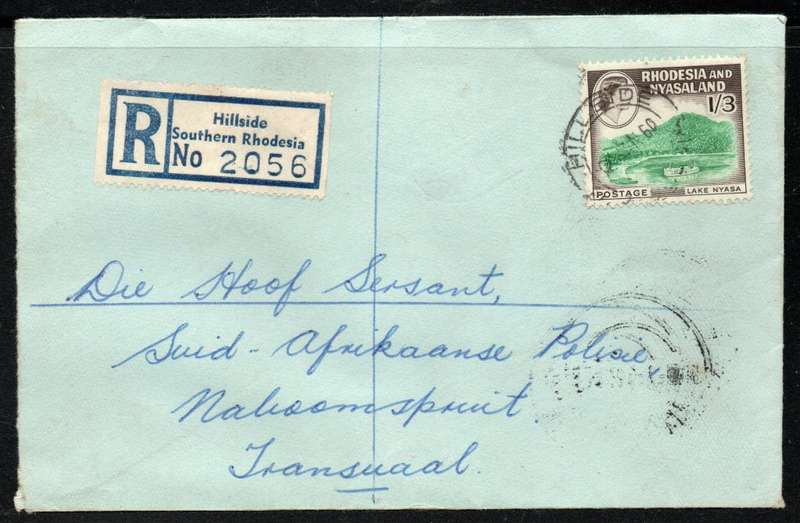 R
Hillside
Southern Rhodesia
No 2056
RHODESIA AND
NYASALAND
1/3
POSTAGE
LAKE NYASA
60
Die Hoof Sersant,
Suid-Afrikaanse Polisie
Naboomspruit
Transvaal.